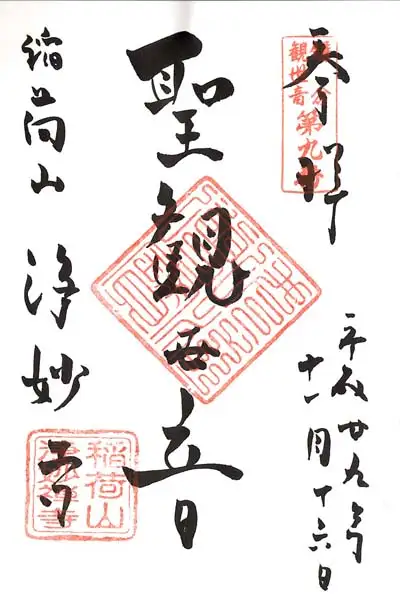 奉拝
第九番
観世音
平成廿九年
十一月十六日
聖観世音
稲荷山 浄妙寺
稲荷山
浄妙禅寺